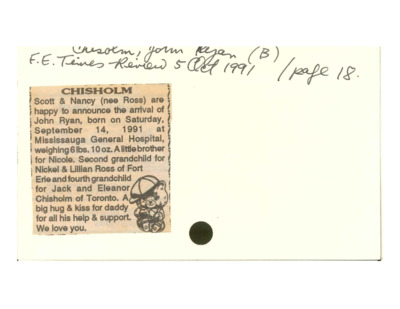 Chisholm, John Ryan (B)
F.E. Times Review 5 Oct 1991 / page 18.
CHISHOLM
Scott & Nancy (nee Ross) are
happy to announce the arrival of
John Ryan, born on Saturday,
September 14, 1991 at
Mississauga General Hospital,
weighing 6 lbs. 10 oz. A little brother
for Nicole. Second grandchild for
Nickel & Lillian Ross of Fort
Erie and fourth grandchild
for Jack and Eleanor
Chisholm of Toronto. A
big hug & kiss for daddy
for all his help & support.
We love you.